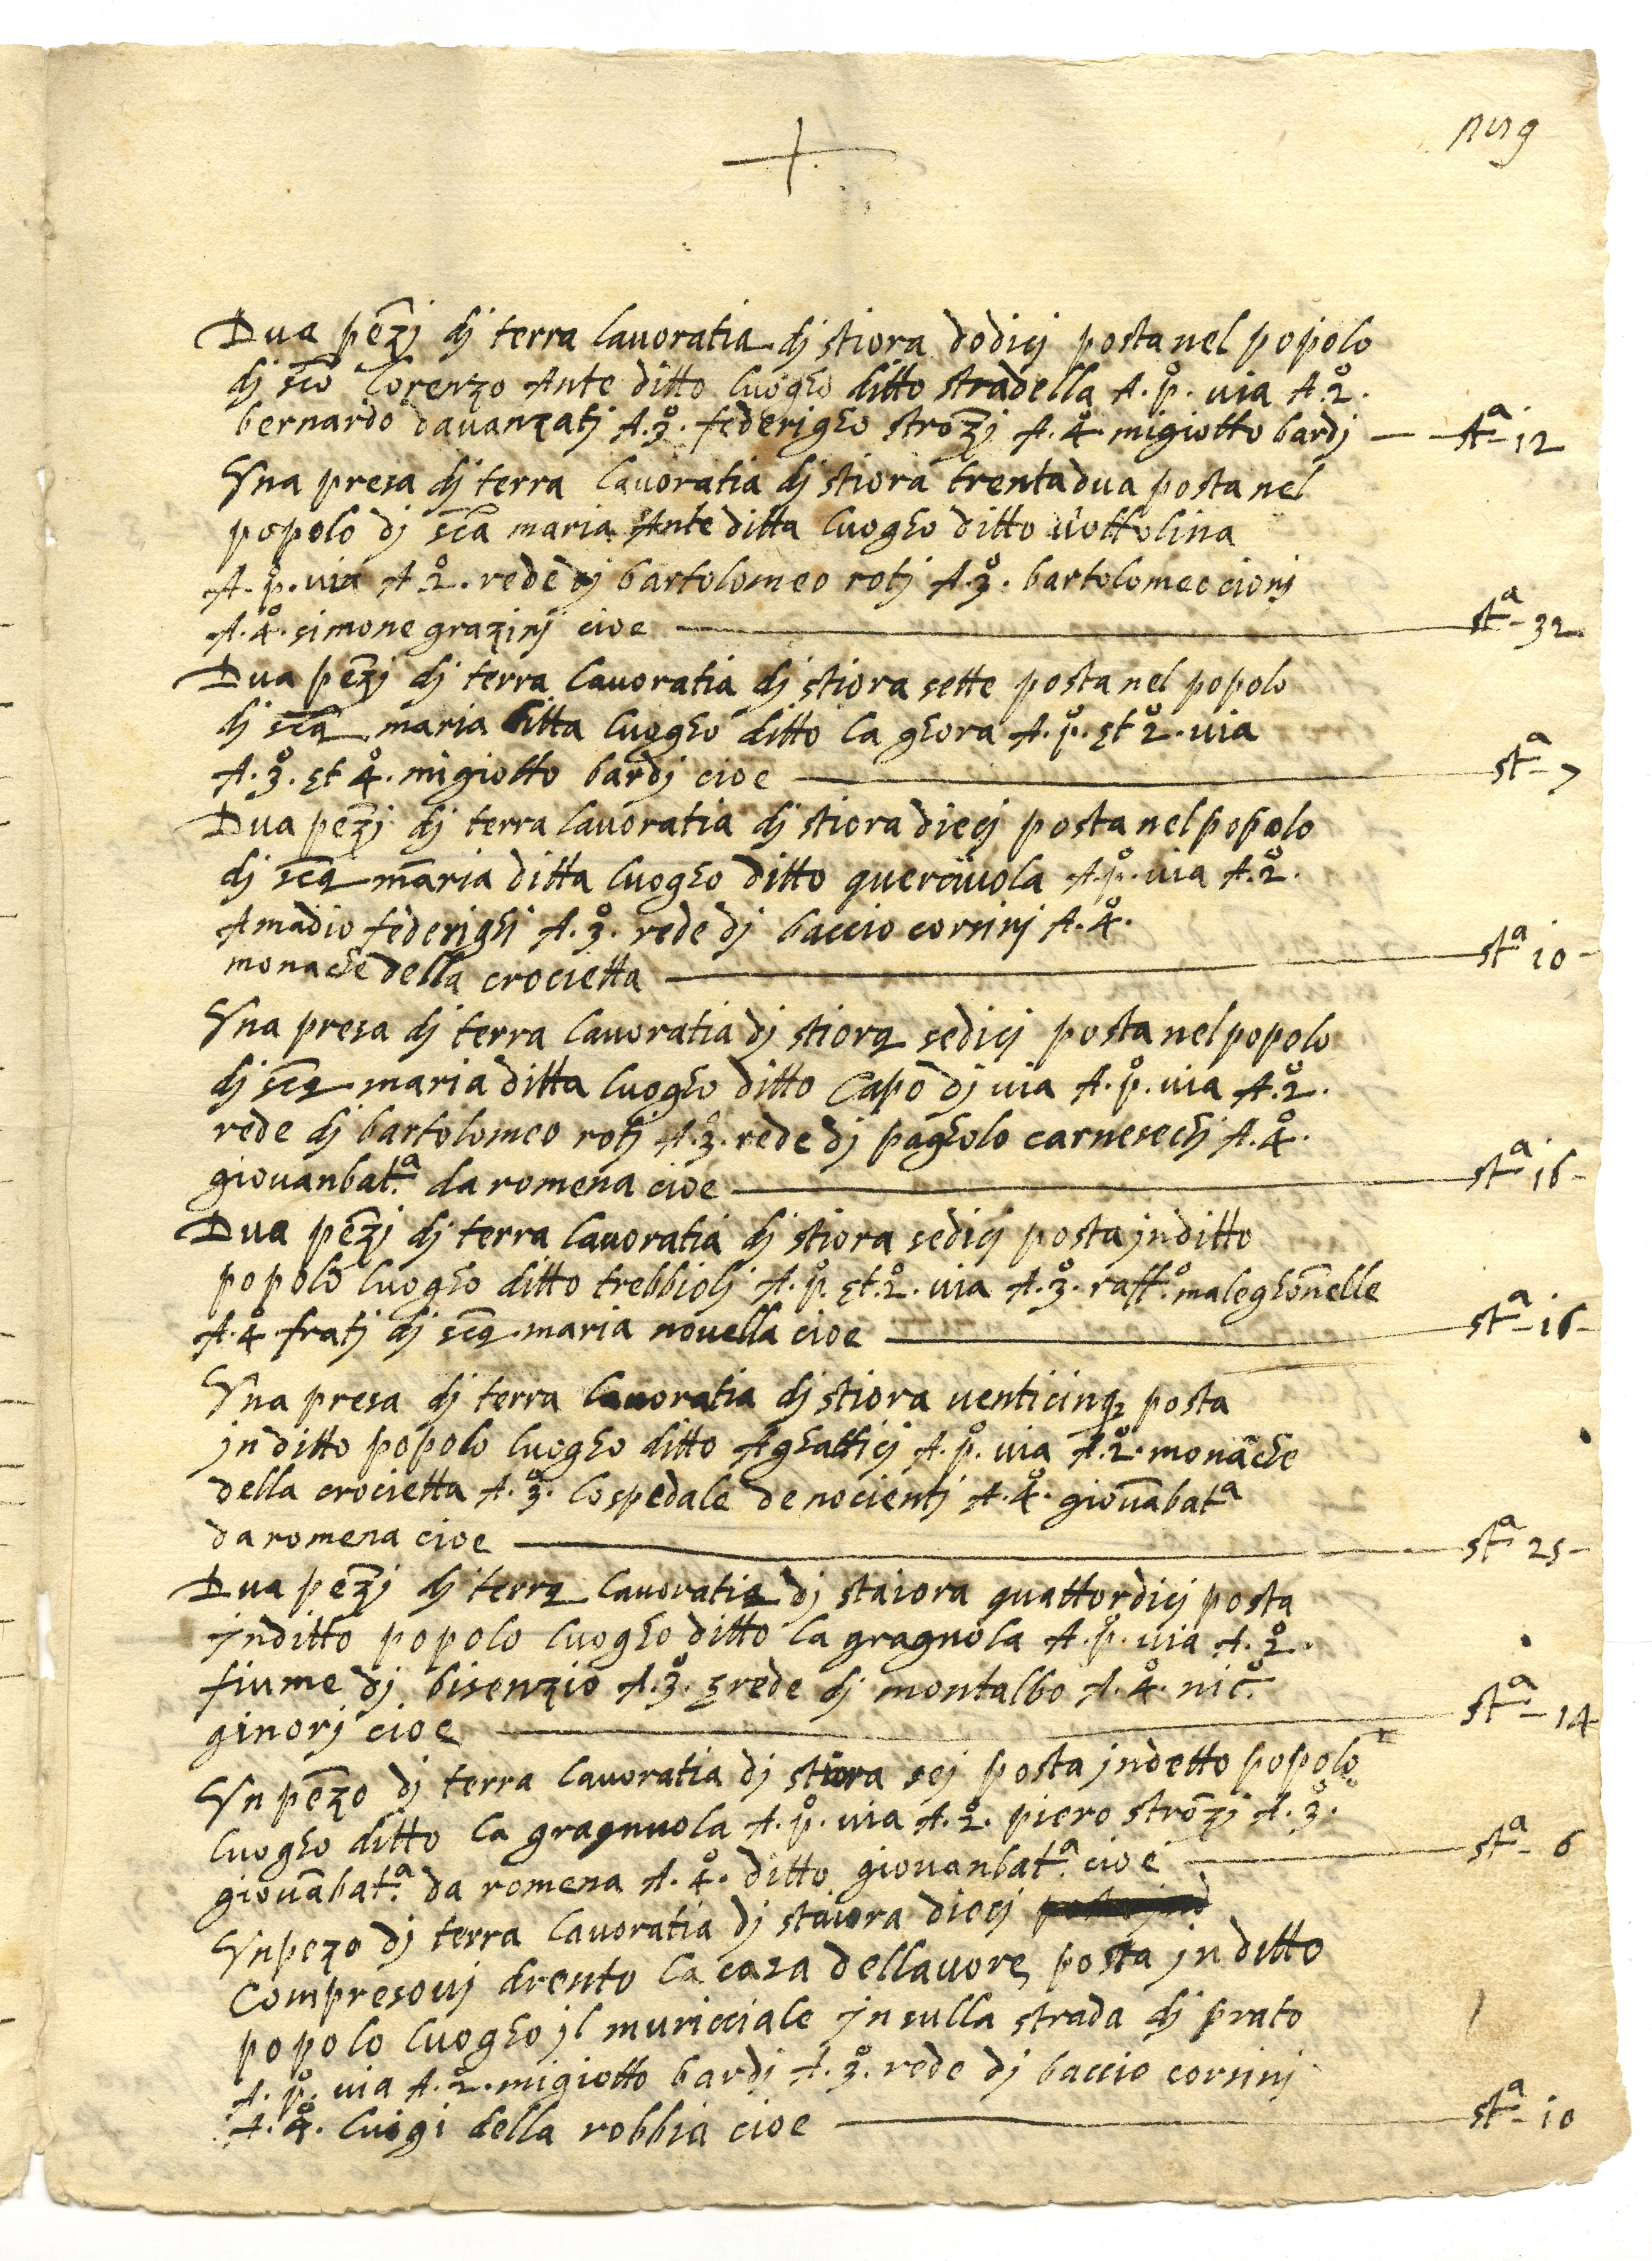 Dua pezj dj terra lauoratia dj stiora dodicj posta nel popolo
dj sco lorenzo Ante ditto luogho ditto stradella A. po. via A. 2o.
bernardo dauanzatj A. 3o. federigho strozj A. 4o. migiotto bardj — sta 12
Vna presa dj terra lauoratia dj stiora trentadua posta nel
popolo dj sca maria Ante ditta luogho ditto uottolina
A. po. via A. 2o. rede dj bartolomeo rotj A. 3o. bartolomeo cionj
A. 4o. simone grazinj cioe — sta 32
Dua pezj dj terra lauoratia dj stiora sette posta nel popolo
dj sca maria ditta luogho ditto la ghora A. po. et 2o. uia
A. 3o. et 4o. migiotto bardj cioe — sta 7
Dua pezj dj terra lauoratia dj stiora diecj posta nel popolo
dj sca maria ditta luogho ditto querciuola A. po. uia A. 2o.
Amadio federighi A. 3o. rede dj baccio corsinj A. 4o.
monache della crocietta — sta 10
Vna presa dj terra lauoratia dj stiora sedicj posta nel popolo
dj sca maria ditta luogho ditto Capo dj uia A. po. uia A. 2o.
rede dj bartolomeo rotj A. 3o. rede dj pagholo carnesechj A. 4o.
giouanbat.a da romena cioe — sta 16
Dua pezj dj terra lauoratia dj stiora sedicj posta jn ditto
popolo luogho ditto trebbiolj A. po. et. 2o. uia A. 3o. raff.o maleghonelle
A. 4o. fratj dj sca maria nouella cioe — sta 16
Vna presa dj terra lauoratia dj stiora uenticinq3 posta
jn ditto popolo luogho ditto Aghatticj A. po. uia A. 2o. monache
della crocietta A. 3o. lo spedale de nocientj A. 4o. giouabat.a
da romena cioe — sta 25
Dua pezj dj terra lauoratia dj staiora quattordicj posta
jn ditto popolo luogho ditto la gragnola A. po. uia A. 2o.
fiume dj bisenzio A. 3o. rede dj montalbo A. 4o. nic.o
ginorj cioe — sta 14
Vn pezo dj terra lauoratia dj stiora sej posta jn detto popolo
luogho ditto la gragnuola A. po. uia A. 2o. piero strozj A. 3o.
giouabat.a da romena A. 4o. ditto giouanbat.a cioe — sta 6
Vn pezo dj terra lauoratia dj staiora diecj
Compresouj drento la casa dellauore posta jn ditto
popolo luogho jl muricciale jn sulla strada dj prato
A. po. uia A. 2o. migiotto bardj A. 3o. rede dj baccio corsinj
A. 4o. luigi della robbia cioe — sta 10